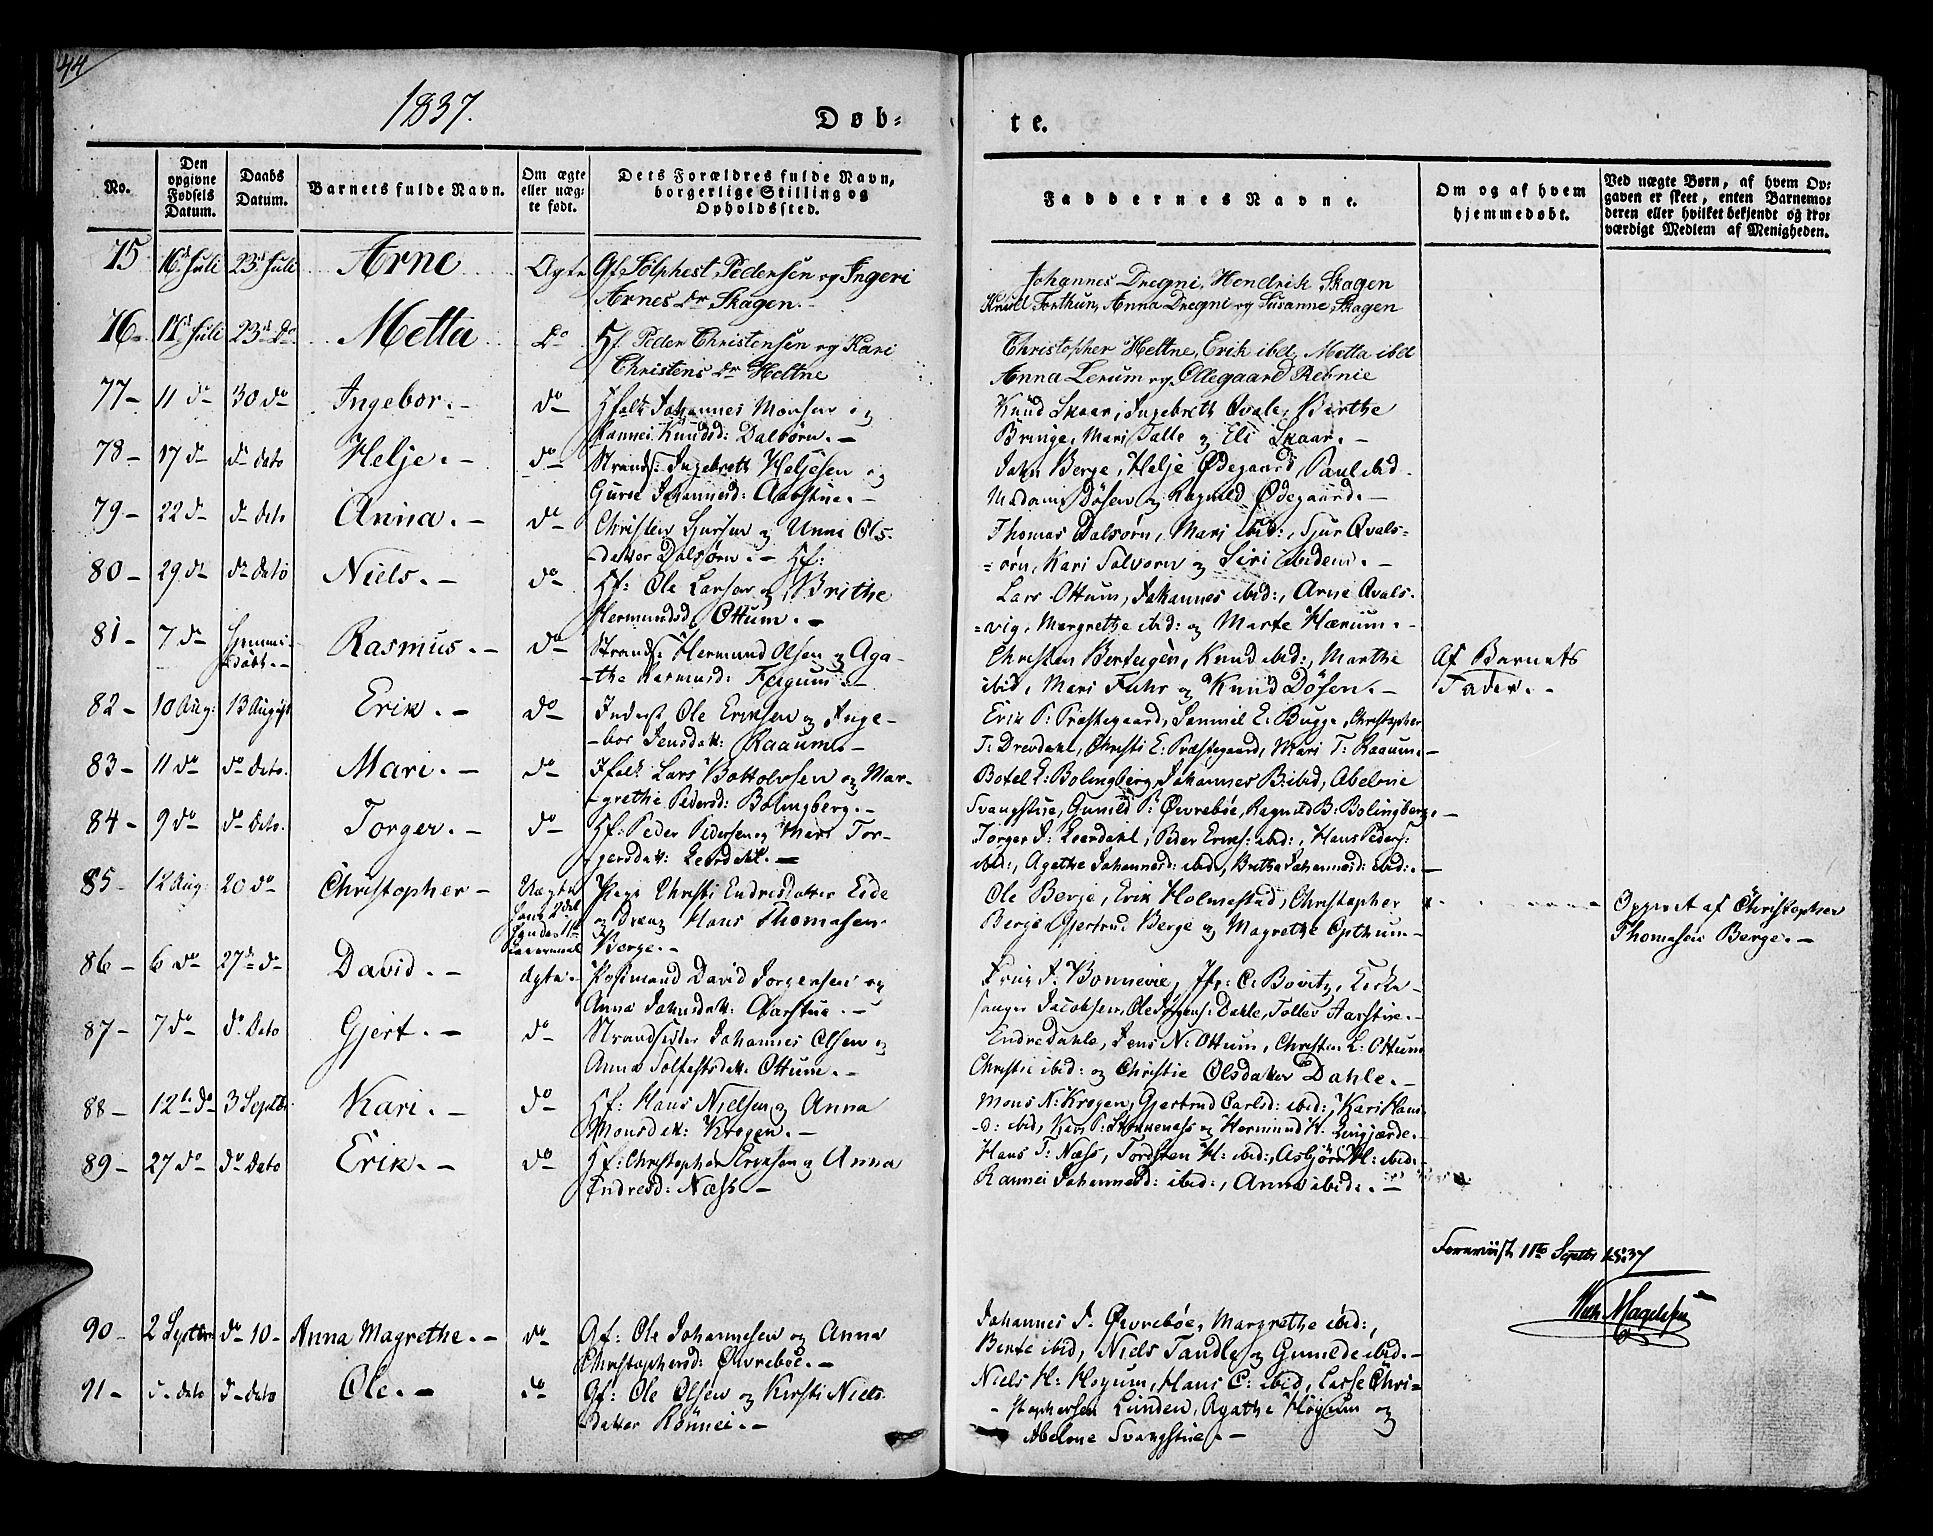 44
1837.
Døb-
te.
No.
Den opgivne Fødsels Datum.
Daabs Datum.
Barnets fulde Navn.
Om ægte eller uæg- te født.
Dets Forældres fulde Navn, borgerlige Stilling og Opholdssted.
Faddernes Navne.
Om og af hvem hjemmedøbt.
Ved uægte Børn, af hvem Op- gaven er skeet, enten Barnemo- deren eller hvilket bekjendt og tro- værdigt Medlem af Menigheden.
75 16d Juli 23d Juli Arne Ægte Gf Tolphest Pedersen og Ingeri
Arnes Dr Skagen.
Johannes Dregni, Hendrik Skagen
Knud Forthun, Anna Dregni og Susanne Skagen
76- 17d Juli 23d Do Metta Do Hf Peder Christensen og Kari
Christens Dr Heltne
Christopher Heltne, Erik ibd, Metta ibd
Anna Lerum og Ollegaard Rebnie
77- 11 do 30 do Ingebor.- do Hfolk Johannes Monsen og
Rannei Knudsd: Dalsørn.-
Knud Skaar, Ingebreth Qvale, Birthe
Bringe, Mari Talle og Eli Skaar.-
78- 17 do do dato Helje.- do Strands: Ingebreth Heljesen og
Guroe Johannesd: Aabstue.-
John Berge, Helje Ødegaard, Paul ibd.
Madame Døsen og Ragnild Ødegaard.-
79- 22 do do dato Anna.- do Christen Larsen og Unni Ols-
datter Dalsørn.- Hf:
Thomas Dalsørn, Mari ibid:, Sjur Qvals-
=ørn, Kari Solvorn og Siri ibidem.-
80- 29 do do dato Niels.- do Hf: Ole Larsen og Brithe
Hermundsd: Ottum.-
Lars Ottum, Johannes ibid:, Arne Qvals-
=vig, Margrethe ibid: og Marte Hærum.-
81- 7 do Hjemme-
døbt.- Rasmus.- do Strands: Hermund Olsen og Aga-
-the Rasmusd: Fergum.-
Christen Bertergen, Knud ibid:, Marthe
ibid, Mari Fuhr og Knud Døsen.-
Af Barnets
Fader.-
82- 10 Aug: 13 August Erik.- do Inderst Ole Eriksen og Inge-
-bor Jensdatt: Raaum.-
Erik P: Præstegaard, Samuel E: Bugge, Christopher
T: Drevdahl, Christi E: Præstegaard, Mari T: Raaum.-
83- 11 do do dato. Mari.- do Hfolk Lars Bottolvsen og Mar-
-grethe Pedersd: Bolingberg.-
Botel L: Bolingberg, Johannes B: ibid, Abelone
Svangstue, Gunild P: Øvrebøe, Ragnild B: Bolingberg.-
84- 9 do do dato. Torger.- do Hf: Peder Pedersen og Mari Tor-
-gersdatt: Leerdahl.-
Torger J: Leerdahl, Peder Eriks: ibid:, Hans Peders:
ibid:, Agathe Johannesd: ibid, Brithe Johannesd: ibid:.-
85- 12 Aug: 20 do Christopher- Uægte Pige Christi Endresdatter Eide
og Dreng Hans Thomasen
Berge.-
Ole Berge, Erik Holmestad, Christopher
Berge Gjertrud Berge og Magrethe Opthum-
Opgivet af Christopher
Thomasen Berge.-
86- 6 do 27de do David.- Ægte.- Postmand David Jørgensen og
Anna Johnsdatt: Aarstue.-
Frue J: Bonnevie, Jfr: C: Bovitz, Kirke-
sanger Jacobsen, Ole Jørgens: Dahle, Tollev Aarstue.-
87- 7 do do Dato Gjert.- do Strandsidder Johannes Olsen og
Anna Tolfestsdatt: Ottum.-
Endre Dahle, Jens N: Ottum, Christen L: Ottum
Christie ibid: og Christie Olsdatter Dahle.-
88- 12te do 3 Septbr: Kari.- do Hf: Hans Nielsen og Anna
Monsdatt: Krogen.-
Mons N: Krogen, Gjertrud Carlsd: ibid:, Kari Hans-
-d: ibid, Kari P: og Hermund H:
89- 27 do do Dato Erik.- do Hf: Christopher Eriksen og Anna
Endresd: Næss.-
Hans T: Næss, Tordsten H: ibid:, Asbjørn H: ibid:-
Rannei Johannesd: ibid:, Anna ibid:.-
Foreviist 11te Septbr 1837
Magelssen
90- 2 Septbr do 10- Anna Magrethe.- do Gf: Ole Johannesen og Anna
Christophersd: Øivrebøe.-
Johannes J: Øivrebøe, Margrethe ibid:,
Bente ibid, Niels Tandle og Gunilde ibid.-
91- do dato do dato Ole.- do Gf: Ole Olsen og Kirsti Niels
-datter Rønnei.-
Niels H: Høyum, Hans C: ibid, Lasse Chri=
-stophersen Linden, Agathe Høyum og
Abelone Svangstue.-